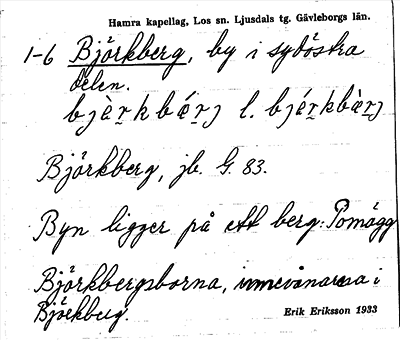 Hamra kapellag, Los sn. Ljusdals tg. Gävleborgs län.
1-6 Björkberg, by i sydöstra
delen.
bjè̱rkbæ̱rj l. bjé̱rkbæ̱rj
Björkberg, jb. G. 83.
Byn ligger på ett berg: Pomågg
Björkbergsborna, innevånarna i
Björkberg.
Erik Eriksson 1933